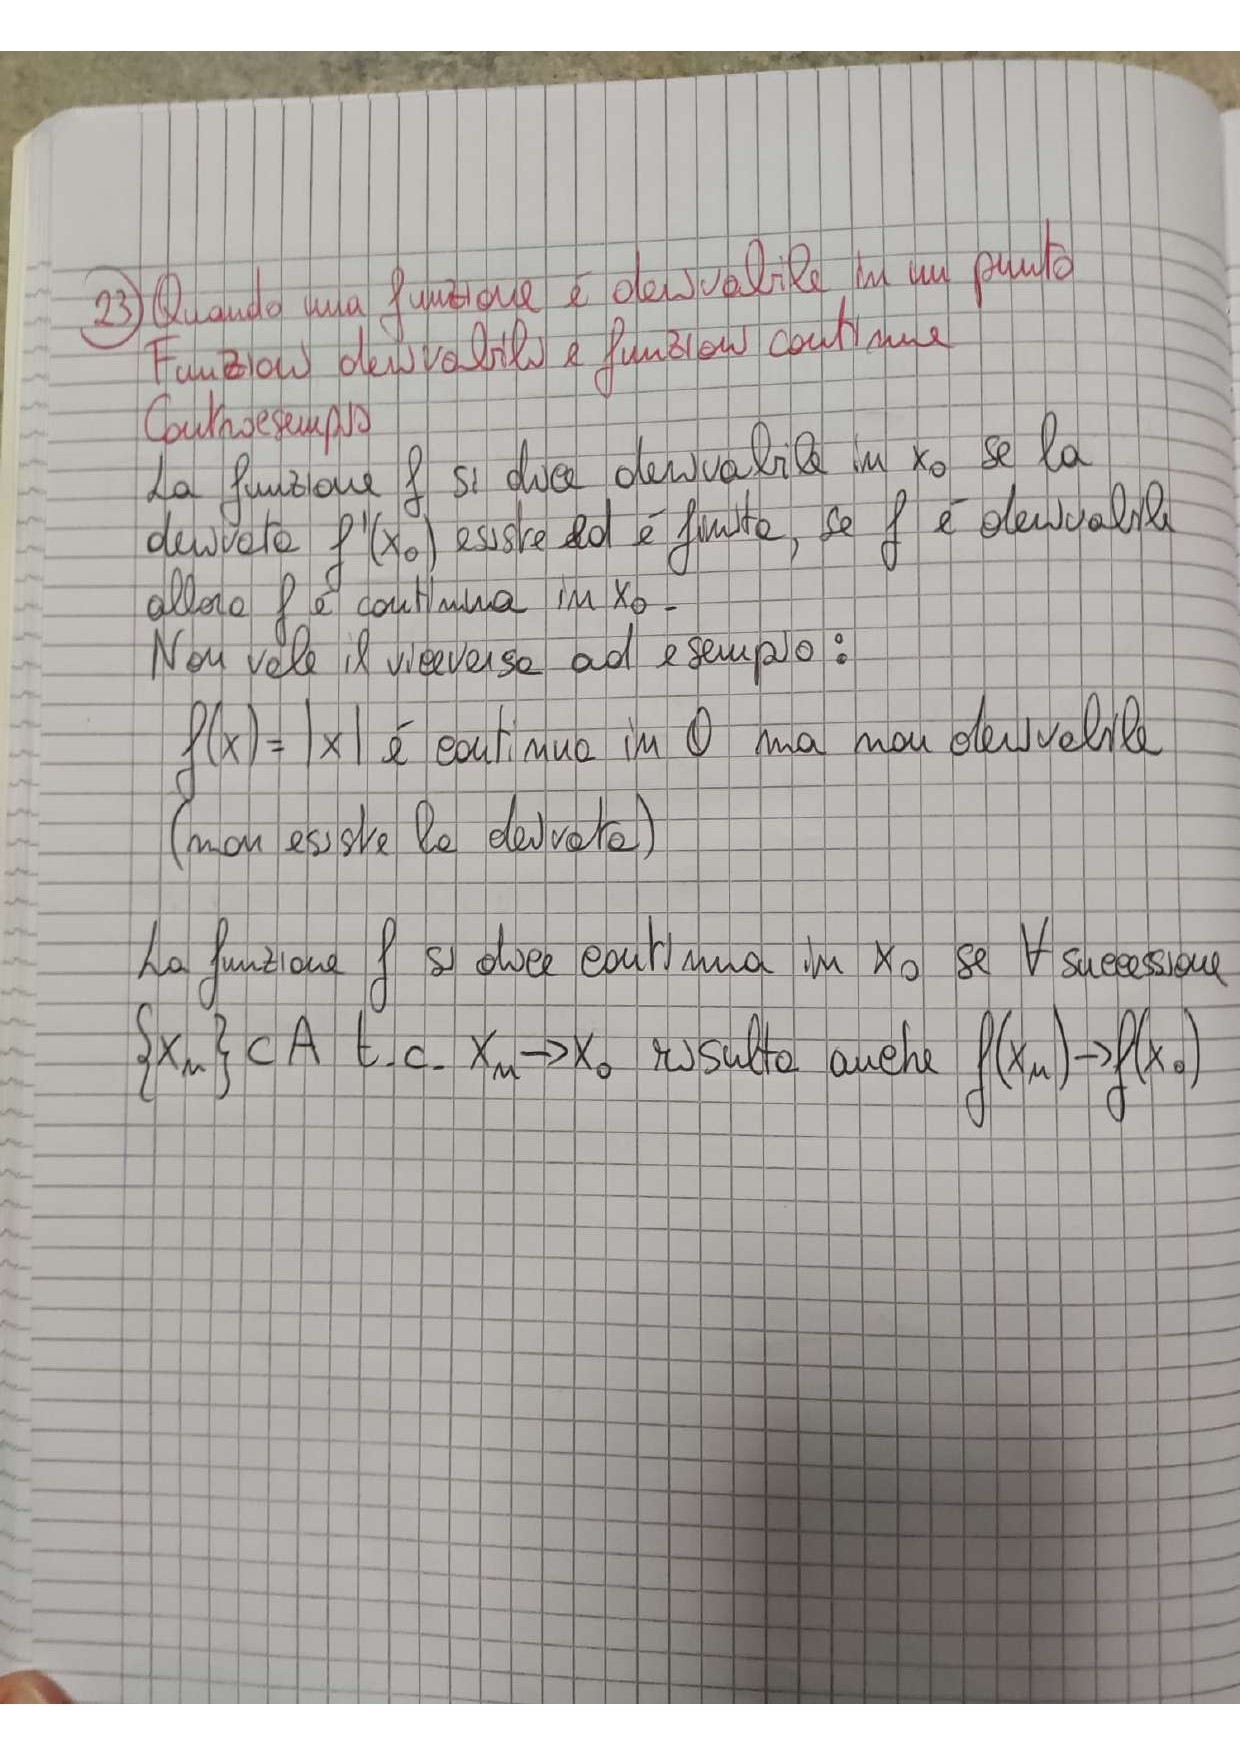 23) Quando una funzione é derivabile in un punto
Funzioni derivabili e funzioni continue
Controesempio
La funzione f si dice derivabile in x₀ se la
derivata f'(x₀) esiste ed é finita, se f é derivabile
allora f é continua in x₀.
Non vale il viceversa ad esempio:
f(x) = |x| é continua in 0 ma non derivabile
(non esiste la derivata)
La funzione f si dice continua in x₀ se ∀ successione
{xₙ} ⊂ A t.c. xₙ → x₀ risulta anche f(xₙ) → f(x₀)